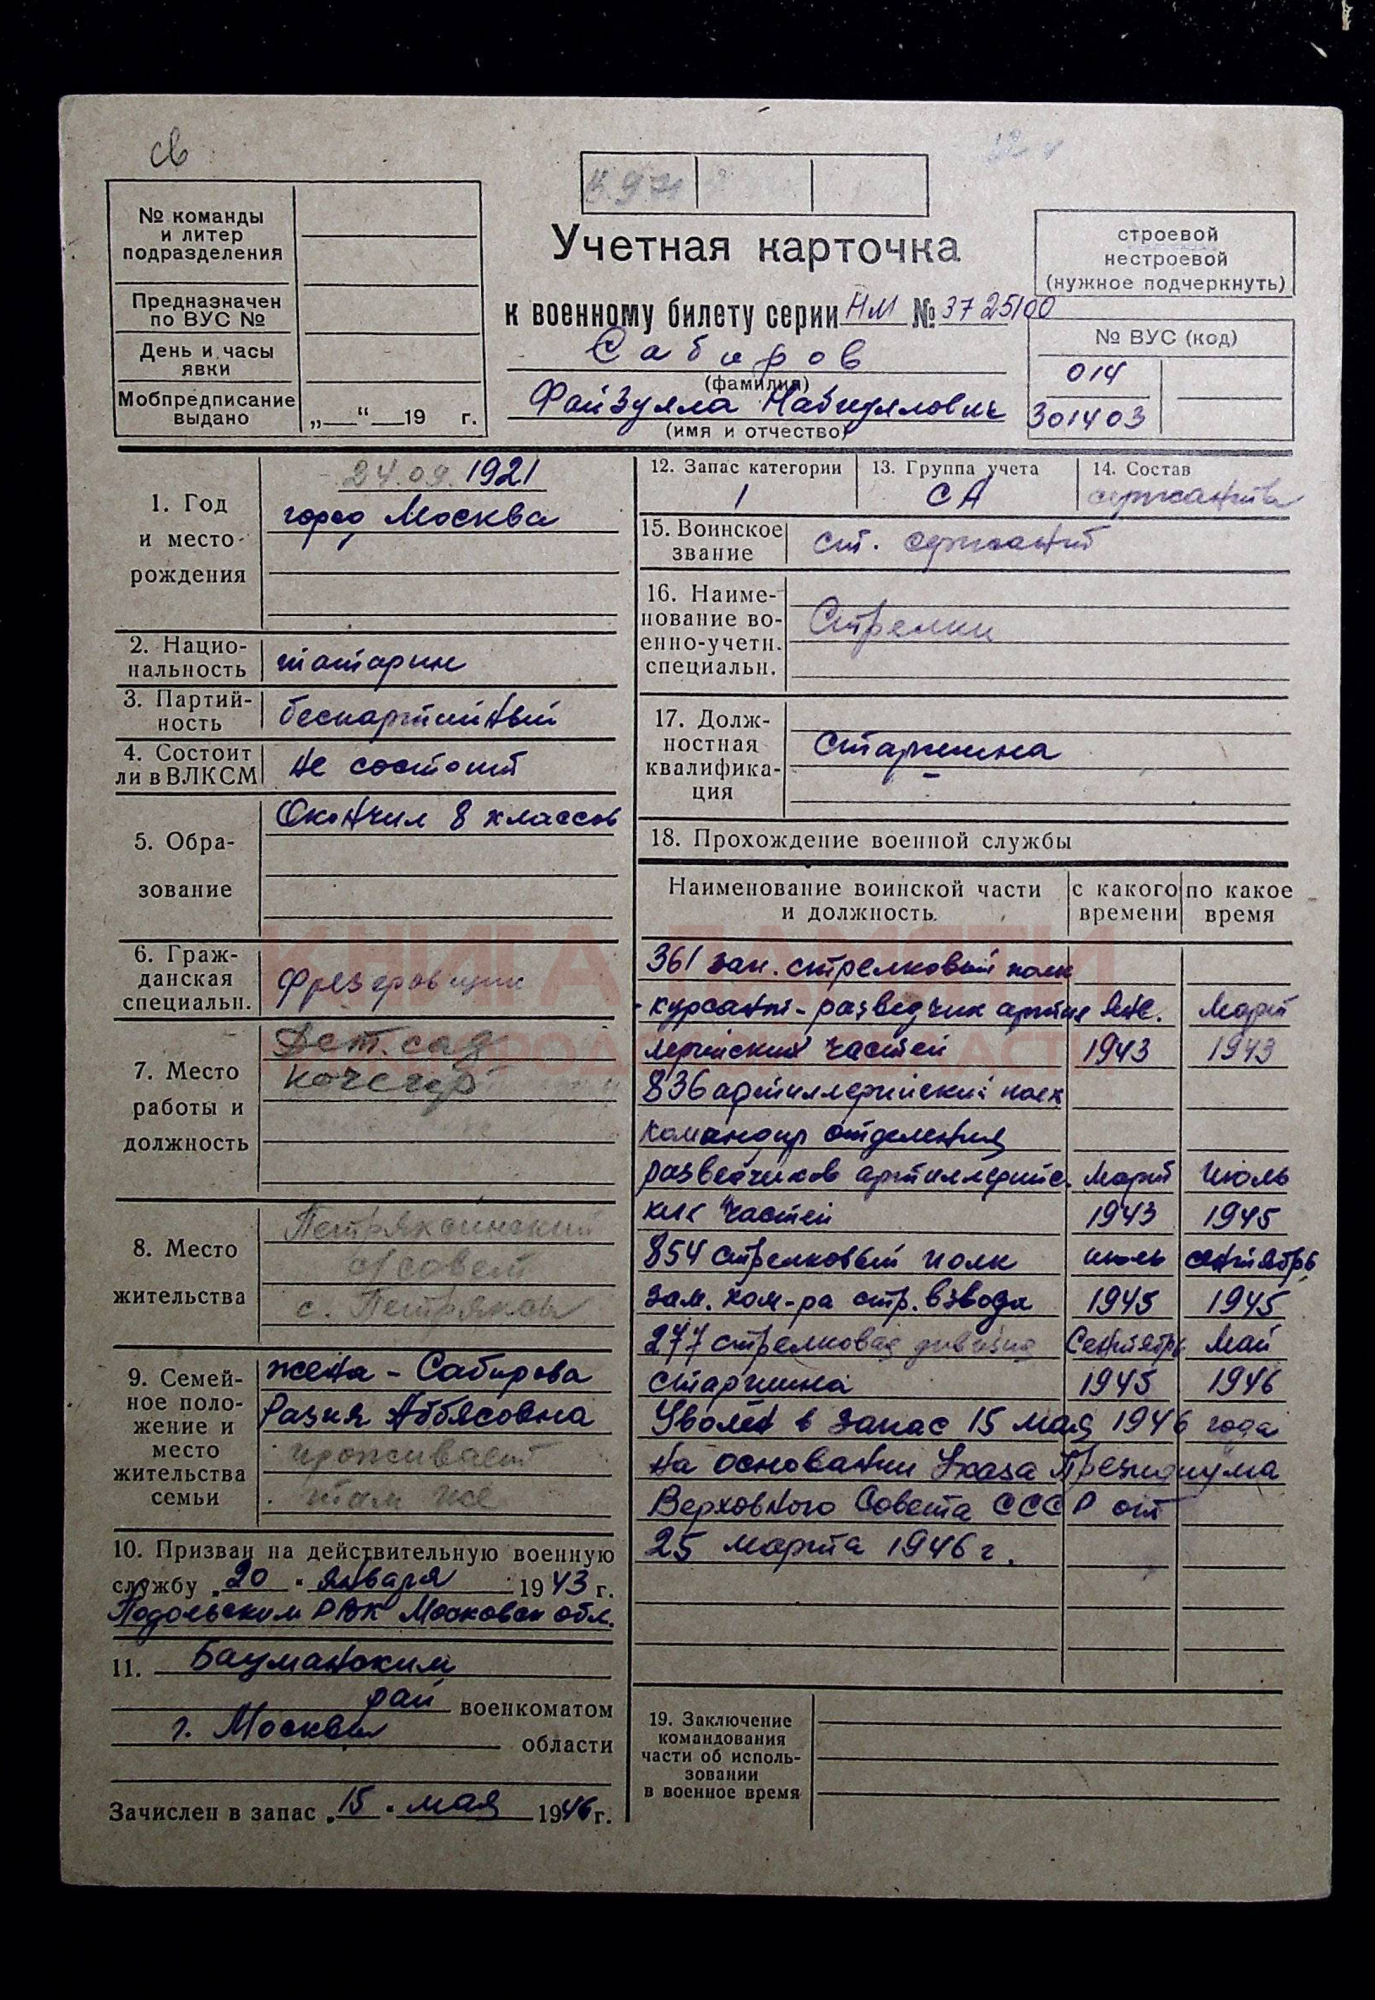 св
№ команды
и литер
подразделения
Предназначен
по ВУС №
День и часы
явки
Мобпредписание
выдано
„ “ 19 г.
Учетная карточка
к военному билету серии НМ № 3725100
Сабиров
(фамилия)
Файзулла Набиуллович
(имя и отчество)
строевой
нестроевой
(нужное подчеркнуть)
№ ВУС (код)
014
301403
1. Год
и место
рождения
24.09.1921
город Москва
2. Нацио-
нальность
татарин
3. Партий-
ность
беспартийный
4. Состоит
ли в ВЛКСМ
не состоит
5. Обра-
зование
Окончил 8 классов
6. Граж-
данская
специальн.
фрезеровщик
7. Место
работы и
должность
Дет. сад
кочегар
8. Место
жительства
Петряксинский
с/совет
с. Петряксы
9. Семей-
ное поло-
жение и
место
жительства
семьи
жена - Сабирова
Разия Аббясовна
проживает
там же
10. Призван на действительную военную
службу „20" января 1943 г.
Подольским РВК Московск обл.
11. Бауманским
рай военкоматом
г. Москвы области
Зачислен в запас „15" мая 1946 г.
12. Запас категории
1
13. Группа учета
СА
14. Состав
сержантов
15. Воинское
звание
ст. сержант
16. Наиме-
нование во-
енно-учетн.
специальн.
Стрелки
17. Долж-
ностная
квалифика-
ция
Старшина
18. Прохождение военной службы
Наименование воинской части
и должность.
с какого
времени
по какое
время
361 зап. стрелковый полк
курсант-разведчик артил Янв. Март
лерийских частей 1943 1943
836 артиллерийский полк
командир отделения
разведчиков артиллерийс. Март Июль
ких частей 1943 1945
854 стрелковый полк июль сентябрь
зам. ком-ра стр. взвода 1945 1945
277 стрелковая дивизия Сентябрь Май
старшина 1945 1946
Уволен в запас 15 мая 1946 года
на основании Указа Президиума
Верховного Совета СССР от
25 марта 1946 г.
19. Заключение
командования
части об исполь-
зовании
в военное время
КНИГА ПАМЯТИ